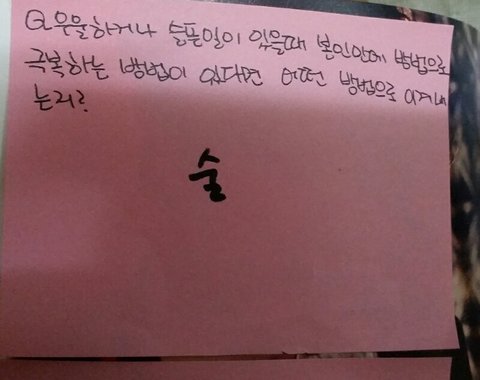 Q.우울하거나 슬픈일이 있을때 본인만에 방법으로
극복하는 방법이 있다면 어떤 방법으로 이겨내
는지?
술